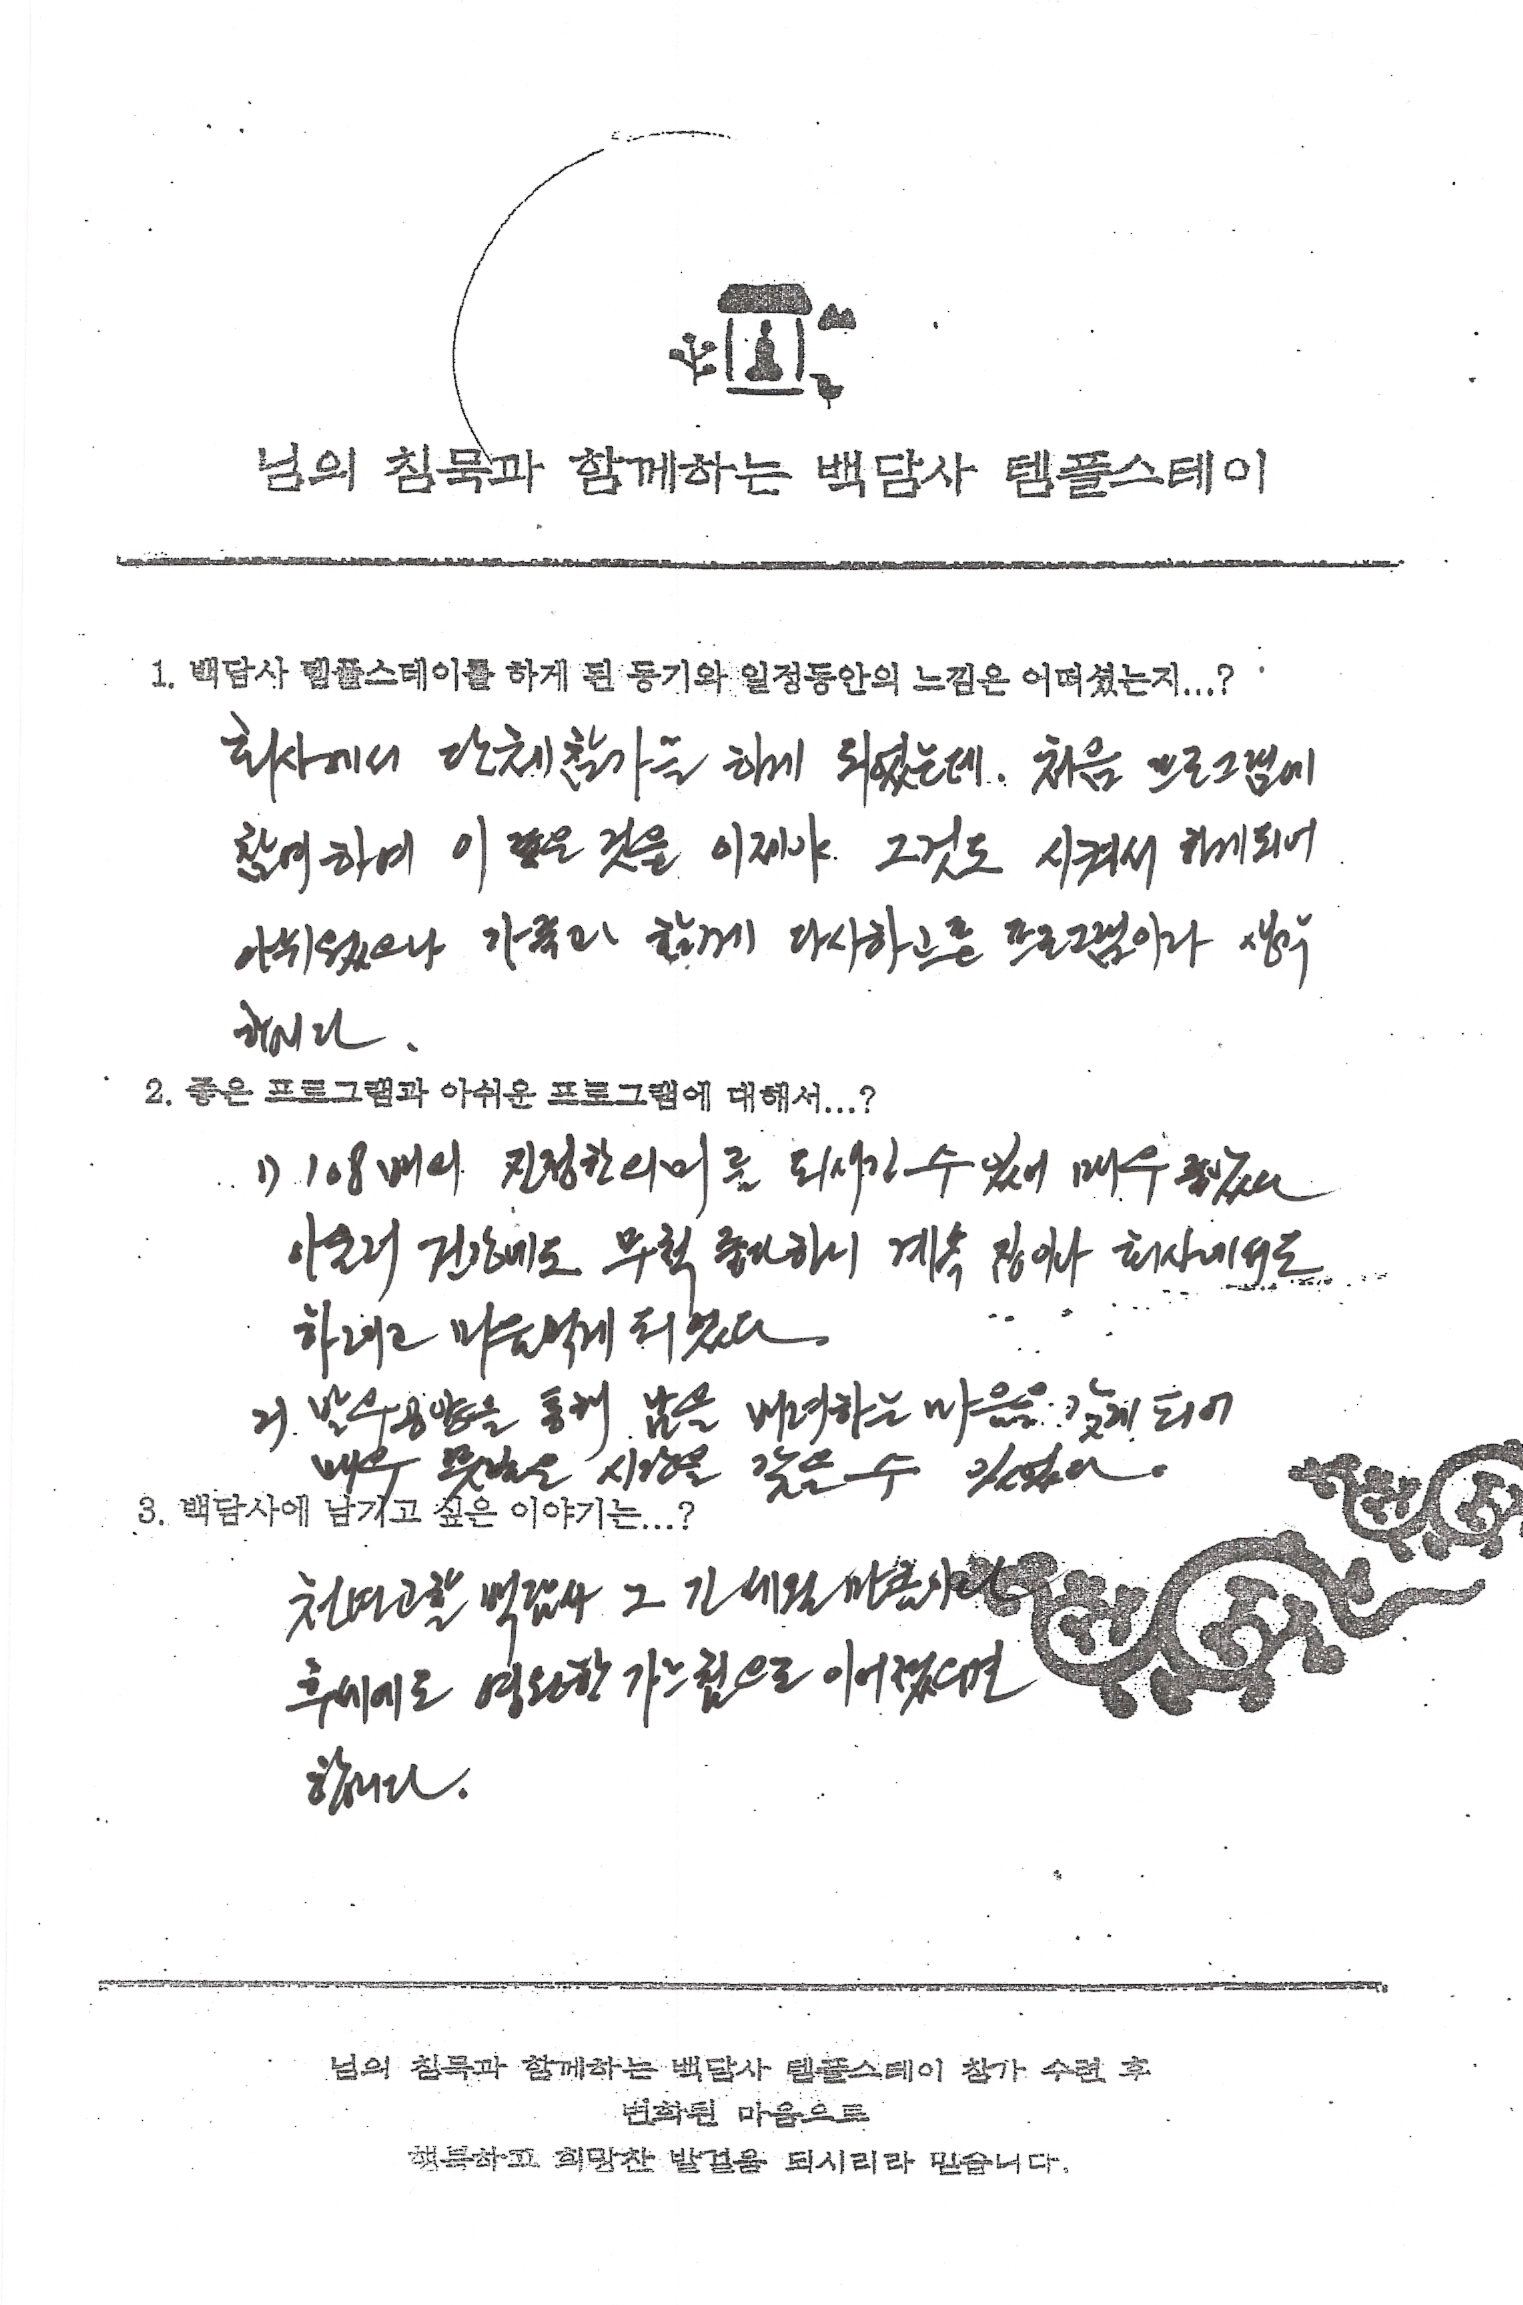 님의 침묵과 함께하는 백담사 템플스테이
1. 백담사 템플스테이를 하게 된 동기와 일정동안의 느낌은 어떠셨는지...?
회사에서 단체참가를 하게 되었는데. 처음 프로그램에
참여하며 이 좋은 것을 이제야. 그것도 시켜서 하게되어
아쉬웠으나 가족과 함께 다시하고픈 프로그램이라 생각
합니다.
2. 좋은 프로그램과 아쉬운 프로그램에 대해서...?
1) 108배의 진정한의미를 되새길 수 있어 매우 좋았다
아울러 건강에도 무척 좋다하니 계속 집이나 회사에서도
하려고 마음먹게 되었다.
2). 발우공양을 통해 남을 배려하는 마음을 갖게 되어
매우 뜻깊은 시간을 갖을 수 있었다.
3. 백담사에 남기고 싶은 이야기는...?
천년고찰 백담사 그 긴 세월만큼이나
후세에도 영원한 가르침으로 이어졌으면
합니다.
님의 침묵과 함께하는 백담사 템플스테이 참가 수련 후
변화된 마음으로
행복하고 희망찬 발걸음 되시리라 믿습니다.